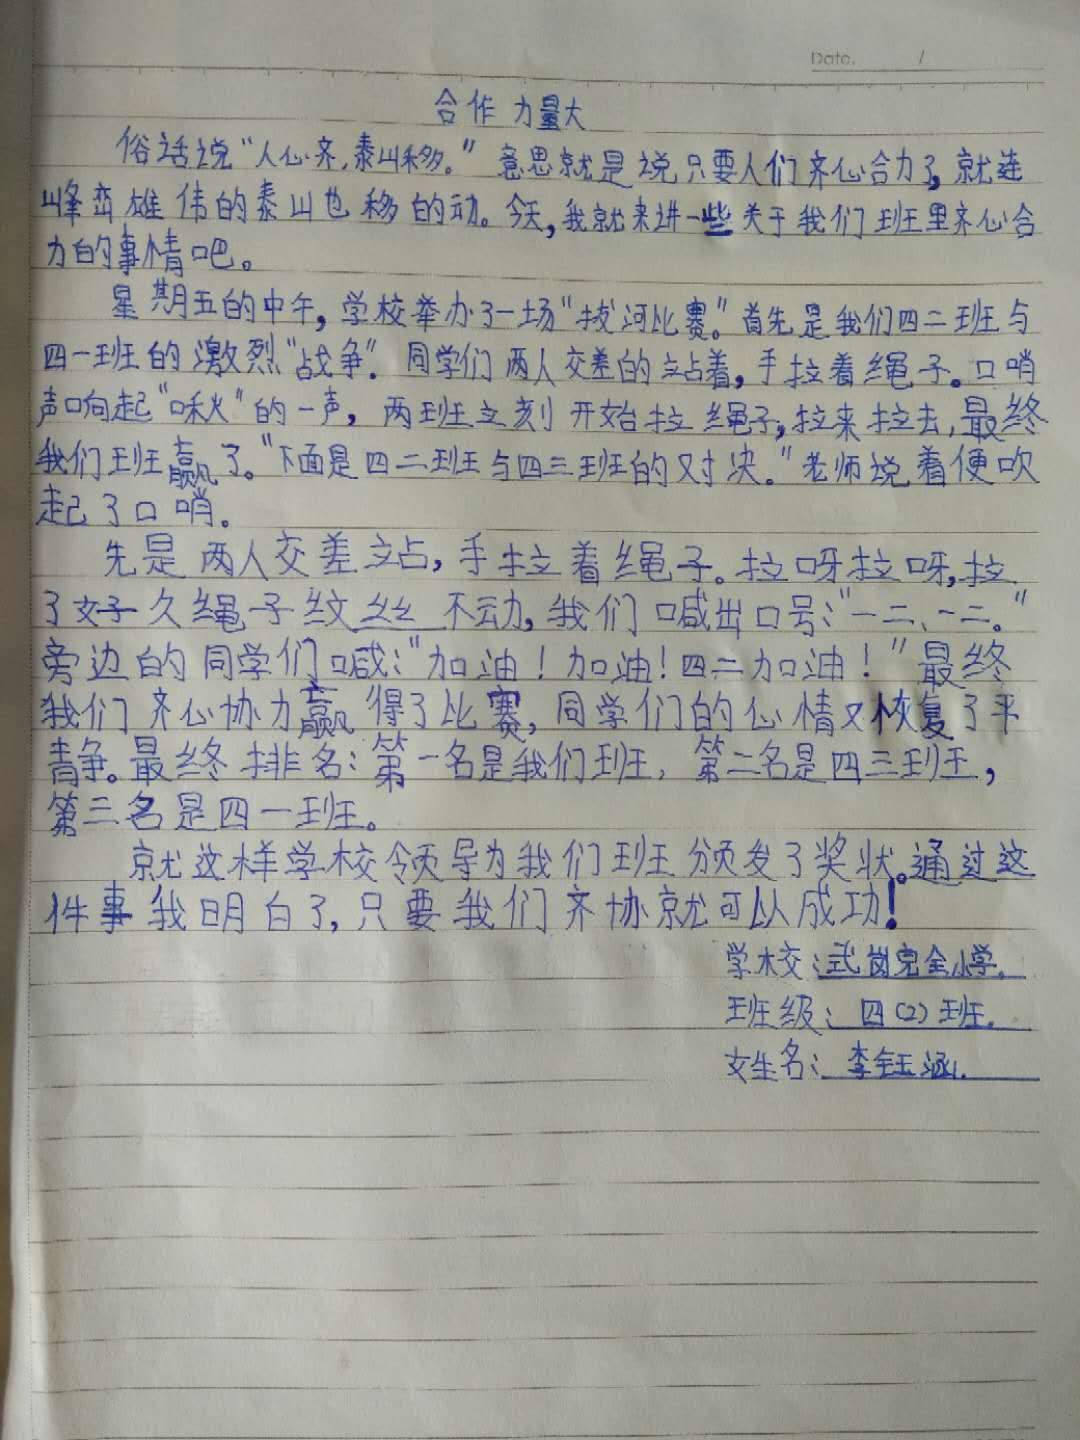 Date. /
合作力量大
俗话说“人心齐,泰山移。”意思就是说只要人们齐心合力了,就连
峰峦雄伟的泰山也移的动。今天,我就来讲一些关于我们班里齐心合
力的事情吧。
星期五的中午,学校举办了一场“拔河比赛。”首先是我们四二班与
四一班的激烈“战争”。同学们两人交差的站着,手拉着绳子。口哨
声响起“啾”的一声,两班立刻开始拉绳子,拉来拉去,最终
我们班赢了。“下面是四二班与四三班的对决。”老师说着便吹
起了口哨。
先是两人交差站,手拉着绳子。拉呀拉呀,拉
了好久绳子纹丝不动,我们喊出口号:“一二、一二。”
旁边的同学们喊:“加油!加油!四二加油!”最终
我们齐心协力赢得了比赛,同学们的心情又恢复了平
静。最终排名:第一名是我们班,第二名是四三班,
第三名是四一班。
就这样学校领导为我们班颁发了奖状。通过这
件事我明白了,只要我们齐协就可以成功!
学校:武岗完全小学.
班级:四(2)班.
女生名:李钰涵.